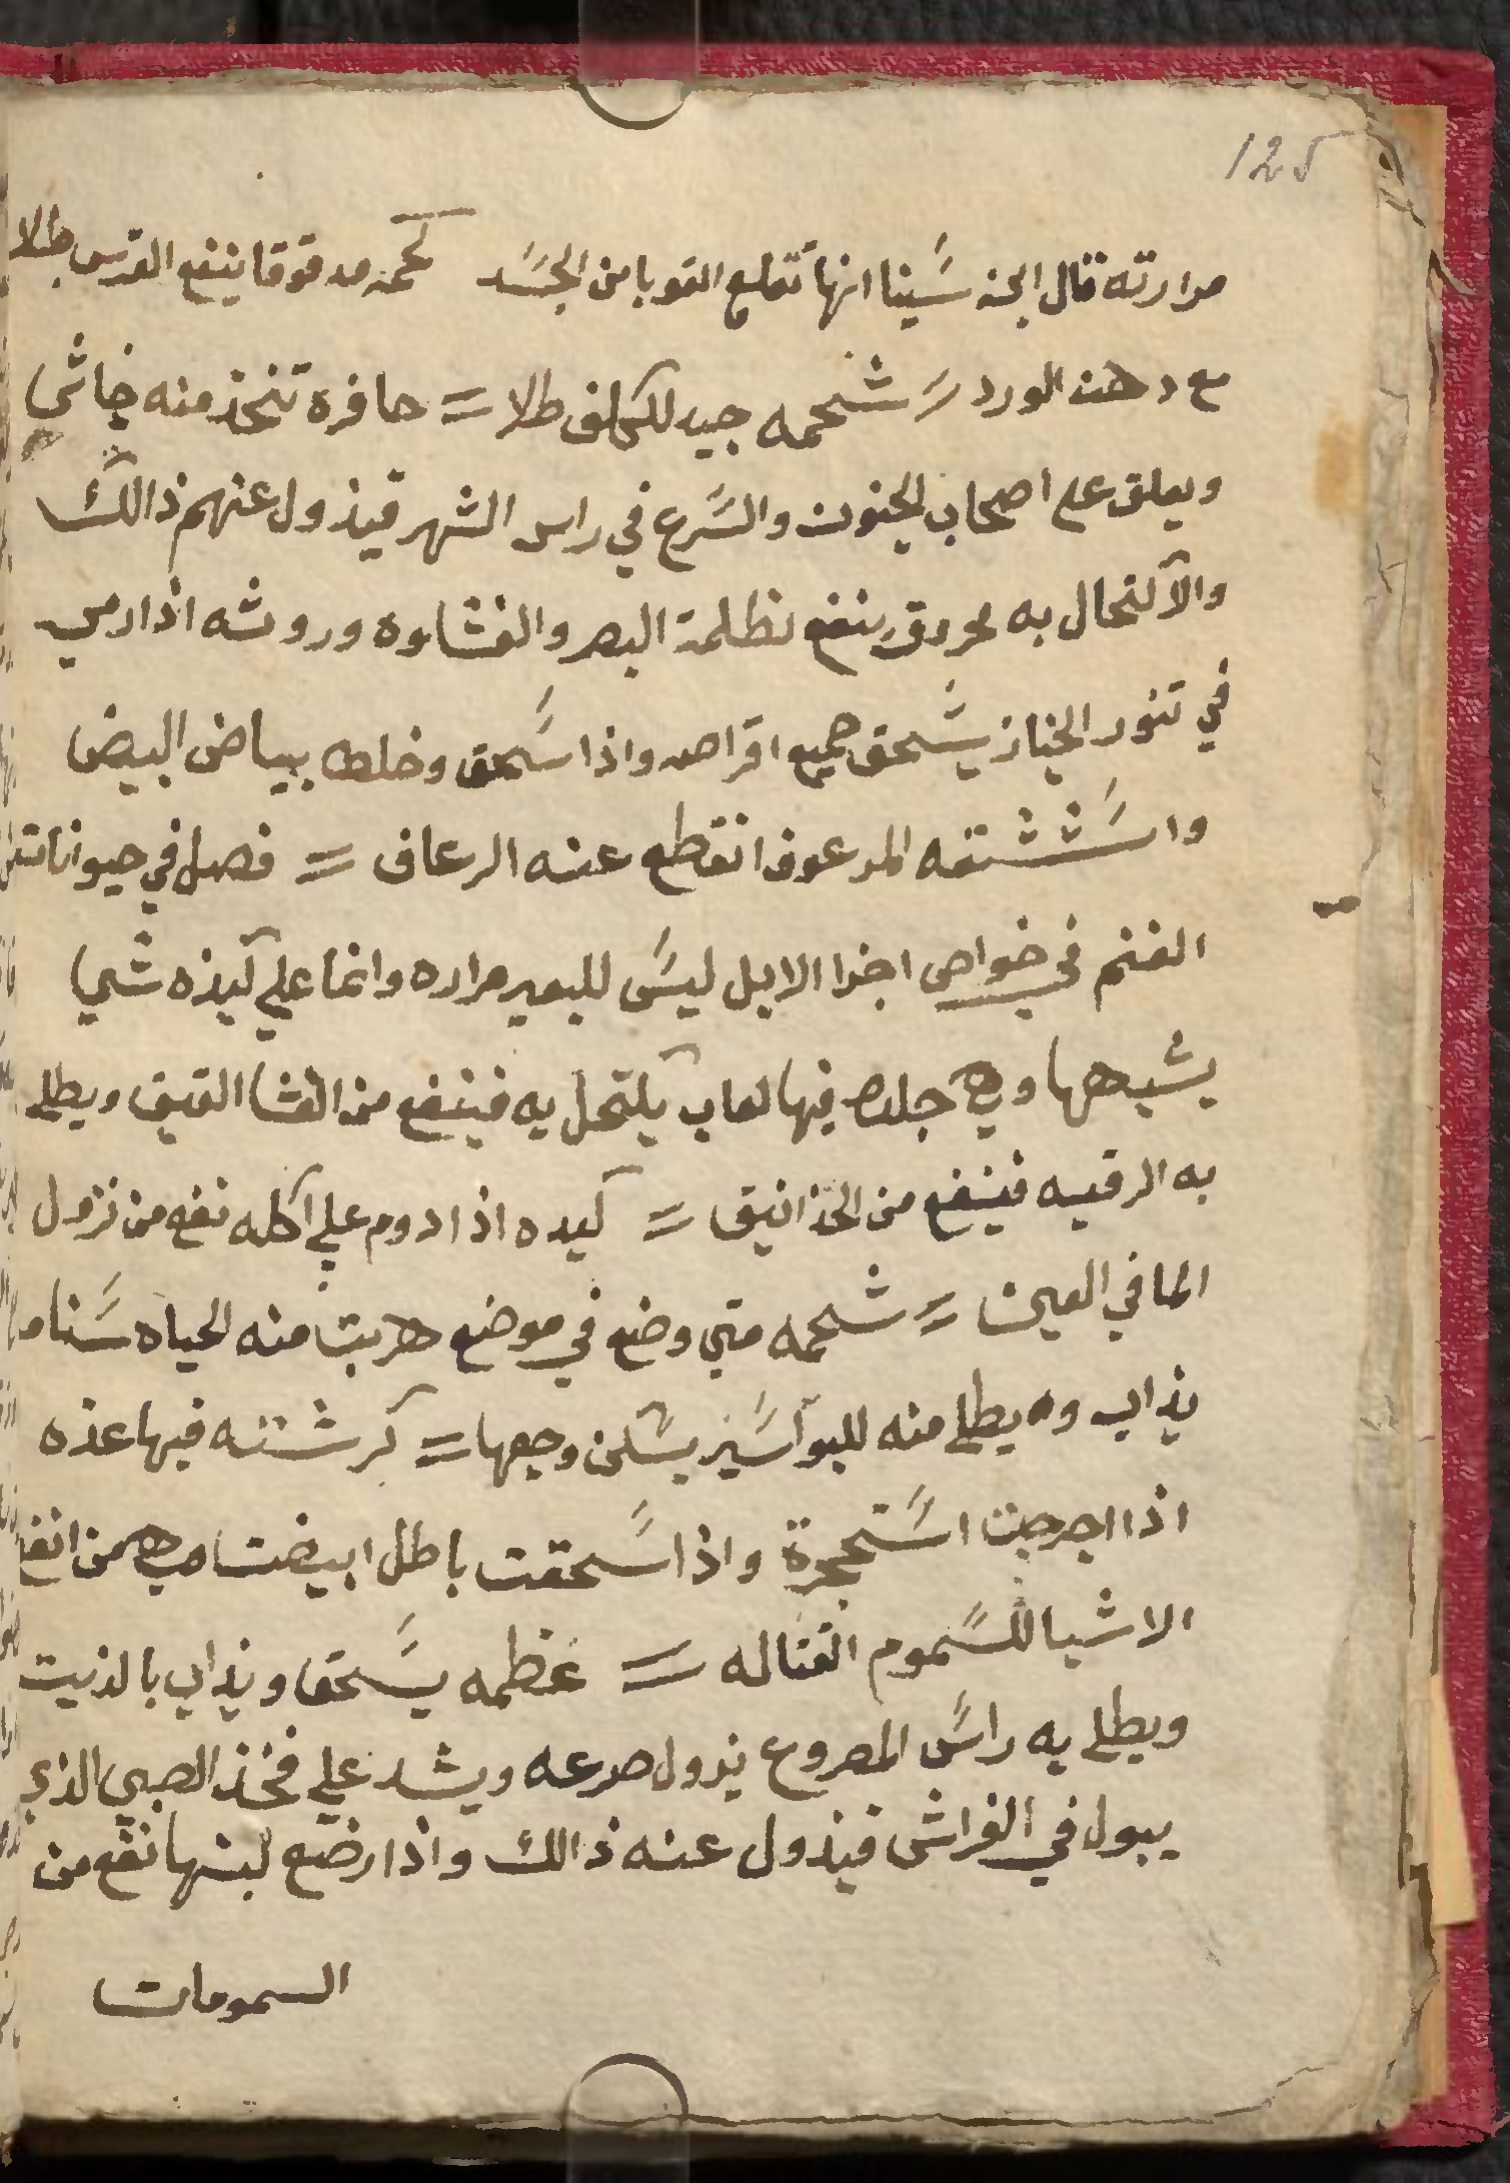 125
مرارته قال ابن سينا انها تقلع القوبا من الجسد لحمه مدقوقا ينفع القرس طلا
مع دهن الورد = شحمه جيد للكلف طلا = حافره تتخذ منه خاتمي
ويعلق على اصحاب الجنون والسرع في راس الشهر فيذول عنهم ذالك
والاكتحال به محروق ينفع لظلمة البصر والغشاوه وروثه اذا رمي
في تنور الخباز يسحق جميع اقراصه واذا سحق وخلطه ببياض البيض
واستشقه المرعوف انقطع عنه الرعاف = فصل في حيوانات
الغنم في خواص اجزا الابل ليس للبعير مراره وانما علي كبذه شي
يشبهها وهي جلده فيها لعاب يكتحل به فينفع من الغشا العتيق ويطلي
به الرقبه فينفع من الخذانيق = كبده اذا دوم علي اكله نفع من نزول
الما في العين = شحمه متي وضع في موضع هربت منه الحياه سنامه
يذاب ويطلي منه للبواسير يسكن وجعها = كرشته فيها غذه
اذا اخرجت استحجرة واذا سحقت باطل ابيضت وهي من انفع
الاشيا للسموم القتاله = عظمه يسحق ويذاب بالذيت
ويطلي به راس المصروع يذول صرعه ويشد علي فخذ الصبي الذي
يبول في الفراش فيذول عنه ذالك واذا رضع لبنها نفع من
السمومات